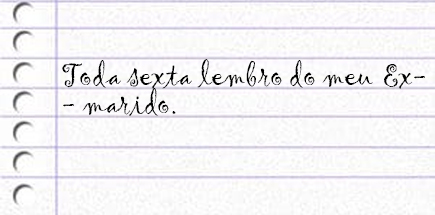 Toda sexta lembro do meu Ex-
- marido.